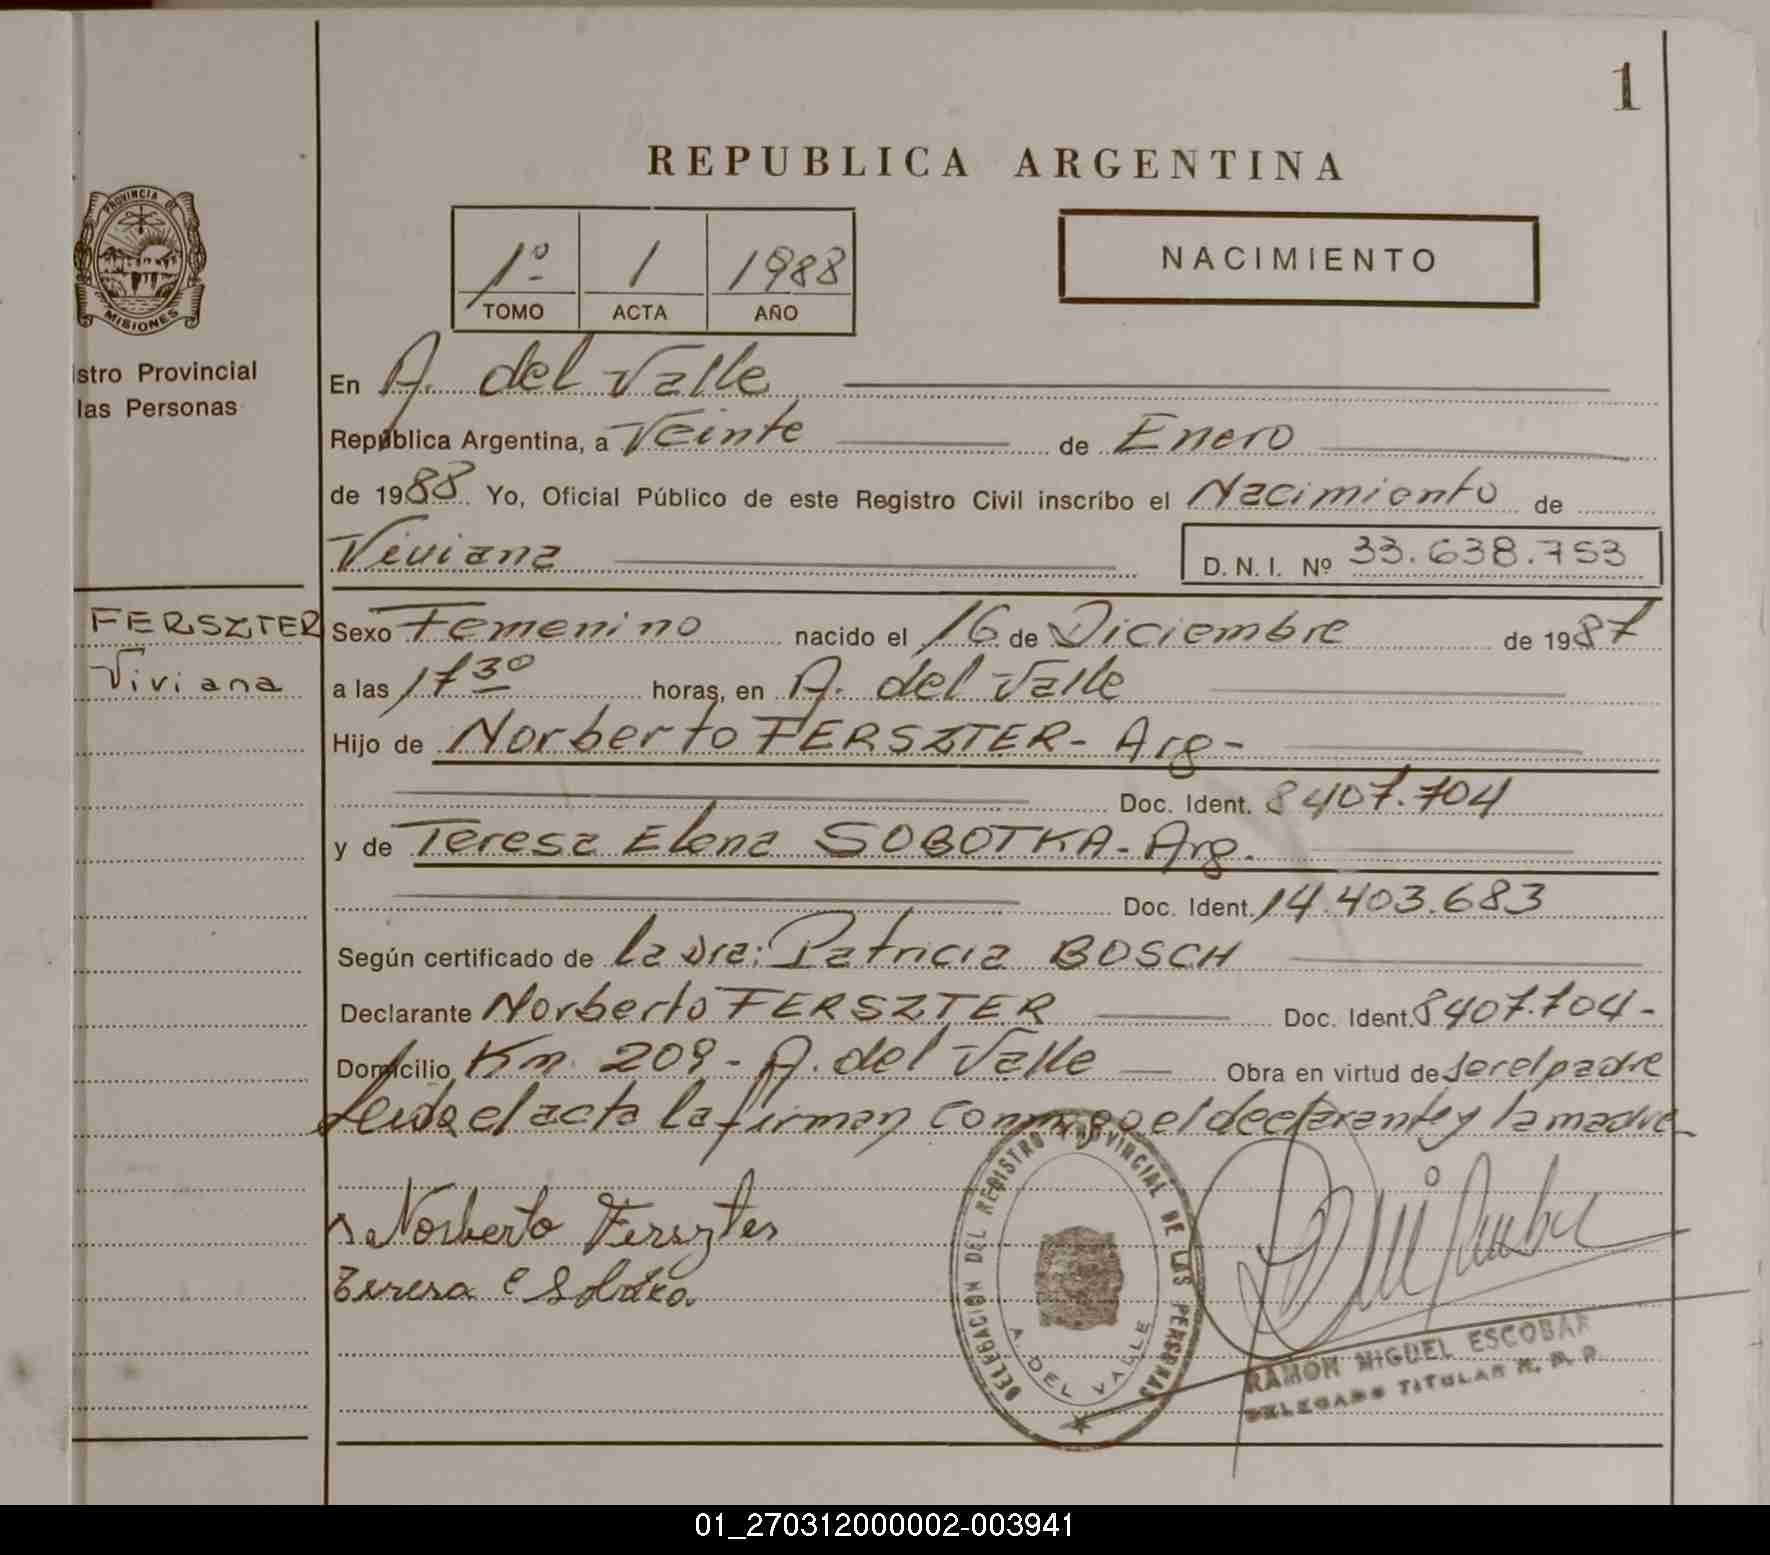 1
REPUBLICA ARGENTINA
PROVINCIA DE
MISIONES
1º 1 1988
TOMO ACTA AÑO
NACIMIENTO
stro Provincial
las Personas
En A. del Valle
República Argentina, a Veinte de Enero
de 1988 Yo, Oficial Público de este Registro Civil inscribo el Nacimiento de
Viviana
D. N. I. Nº 33.638.753
FERSZTER
Viviana
Sexo Femenino nacido el 16 de Diciembre de 1987
a las 17 30 horas, en A. del Valle
Hijo de Norberto FERSZTER - Arg -
Doc. Ident. 8407.704
y de Teresa Elena SOBOTKA - Arg.
Doc. Ident. 14.403.683
Según certificado de la Dra: Patricia BOSCH
Declarante Norberto FERSZTER Doc. Ident. 8407.704-
Domicilio Km. 209 - A. del Valle Obra en virtud de ser el padre
Leida el acta la firman conmigo el declarante y la madre
Norberto Ferszter
Teresa E Sobotka
DELEGACION DEL REGISTRO PROVINCIAL DE LAS PERSONAS
A. DEL VALLE
RAMON MIGUEL ESCOBAR
DELEGADO TITULAR
01_270312000002-003941